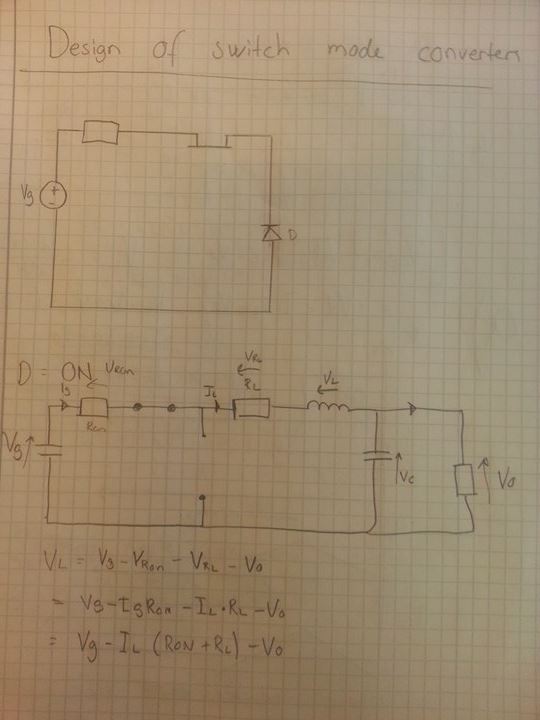 Design of switch mode converters
Vg
+
-
D
D = ON
VRon
Ig
Ron
IL
VRL
RL
VL
Vg
Vc
Vo
VL = Vg - VRon - VRL - Vo
= Vg - IgRon - IL·RL - Vo
= Vg - IL (RON + RL) - Vo